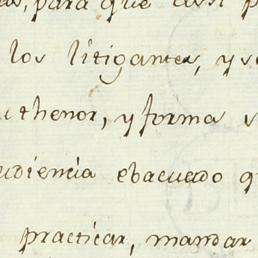 para que assi p
los litigantes, y s
thenor, y forma
udiencia ebacuado q
practicar, mandar